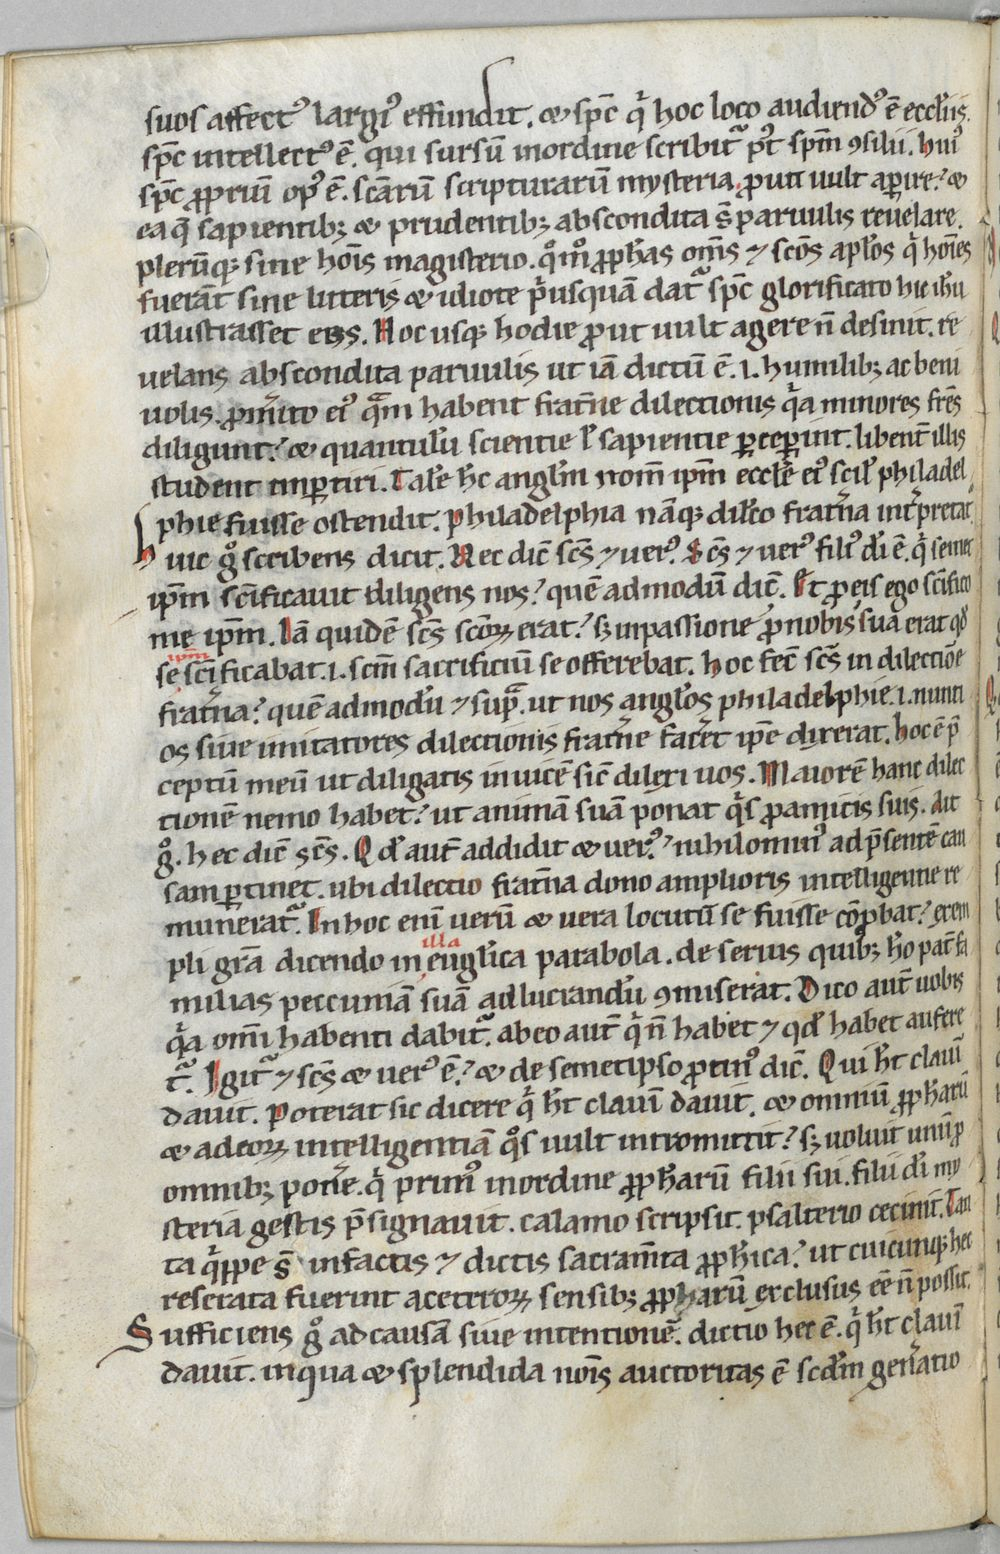 suos affectꝰ largiꝰ effundit. & spc̄ q̇ hoc loco audiendꝰ ē eccłiis.
spc̄ intellectꝰ ē. qui sursū in ordine scribit᷑ p̄t spm̄ ꝯsilii. huiꝰ
spc̄ ꝓpriū opꝰ ē. scārū scripturarū mysteria ꝓut uult aꝑire? &
ea q̄ sapientibꝫ & prudentibꝫ abscondita s̄ paruulis reuelare.
plerūqꝫ sine hoīs magisterio. qͦm ꝓph̄as om̄s ⁊ scōs apłos q̇ hoīes
fuerāt sine litteris & idiote p̓usquā dat᷑ spc̄ glorificato hic ih̄u
illustrasset eos. Hoc usqꝫ hodie ꝓut uult agere n̄ desinit. re
uelans abscondita paruulis ut iā dictū ē. i. humilibꝫ ac beni
uolis. ꝓm̓ito eiꝰ qᷓm habent frat̓ne dilectionis qᷓa minores fr̄es
diligunt? & quantulū scientie ł sapientie ꝑceꝑint. libent̓ illis
student impꝑtiri. Tale h̓c angłm nom̄ ipm̄ eccłe eiꝰ scił philadel
phie fuisse ostendit. Philadelphia nāqꝫ dilc̄o frat̓na int̓pretat᷑
huic gͦ scribens dicit. Hec dic̄ scs̄ ⁊ uerꝰ. Scs̄ ⁊ uerꝰ filiꝰ dī ē. q̇ semet
ipm̄ scīficauit diligens nos? quē admodū dic̄. Et ꝓ eis ego scīfico
me ipm̄. Iā quidē scs̄ scōꝝ erat? sꝫ in passione ꝓ nobis sua erat qͦd
se ipm̄ scīficabat. i. scm̄ sacrificiū se offerebat. hoc fec̄ scs̄ in dilectiōe
frat̓na? quē admodū ⁊ supᷓ. ut nos angłos philadelphie. i. nunti
os siue imitatores dilectionis frat̓ne facet̓ ipse dixerat. hoc ē p̄
ceptū meū ut diligatis inuicē sic̄ dilexi uos. Maiorē hanc dilec
tionē nemo habet? ut animā suā ponat q̇s ꝓ amicis suis. Ait
gͦ. hec dic̄ scs̄. Qd̓ aut̄ addidit & uerꝰ? nihilominꝰ ad p̄sentē cau
sam ꝑtinet. ubi dilectio frat̓na dono amplioris intelligentie re
munerat᷑. In hoc enī uerū & uera locutū se fuisse cōꝓbat? exem
pli grā dicendo in illa eugłica parabola. de seruis quibꝫ h̓o pat̓fa
milias peccuniā suā ad lucrandū ꝯmiserat. Dico aut̄ uobis
qᷓa omī habenti dabit᷑. ab eo aut̄ q̇ n̄ habet ⁊ qd̓ habet aufere
t᷑. Igit᷑ ⁊ scs̄ & uerꝰ ē? & de semetipso ꝓtinꝰ dic̄. Qui h̄t clauī
dauit. Poterat sic dicere q̇ h̄t clauī dauit. & omniū ꝓph̄arū
& ad eoꝝ intelligentiā qͦs uult intromittit? sꝫ uoluit unū ꝓ
omnibꝫ pon̓e. q̇ primꝰ in ordine ꝓph̄arū filii sui. filii dī my
steria gestis p̄signauit. calamo scripsit. psalterio cecinit. Tan
ta q̇ppe s̄ in factis ⁊ dictis sacram̄ta ꝓph̄ica? ut cuicunqꝫ hec
reserata fuerint a ceteroꝝ sensibꝫ ꝓpharū exclusus eē n̄ possit.
Sufficiens gͦ ad causā siue intentionē. dictio hec ē. q̇ h̄t clauī
dauit. in qua & splendida noīs auctoritas ē scd̄m gen̓atio